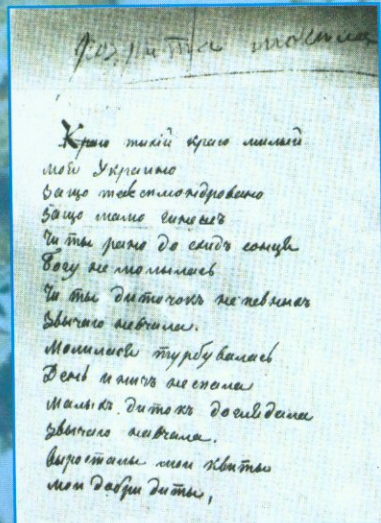 Розрита могила
Краю тихій краю милый
моя Украино
За що тебе сплюндровано
За що мамо гинешъ
Чи ты рано до схидъ сонця
Богу не молылась
Чи ты диточокъ непевныхъ
Звычаю невчила.
Молилася турбувалась
День и ничъ не спала
Малыхъ дитокъ доглядала
Звычаю навчала.
Выросталы мои квиты
мои добри диты,